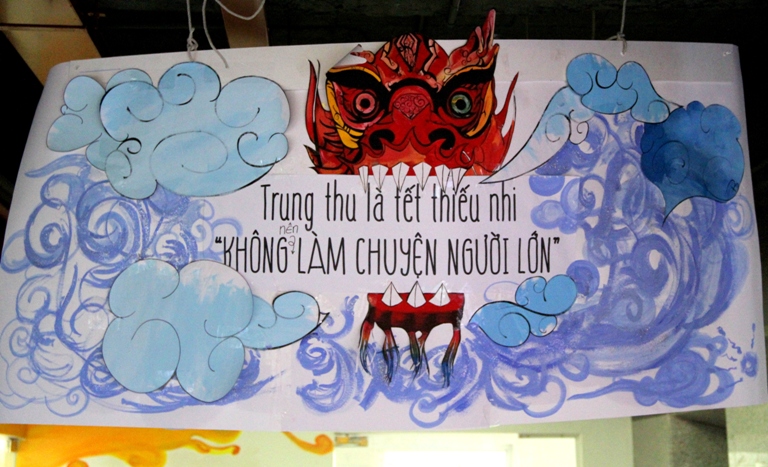 Trung thu là tết thiếu nhi
nên
"KHÔNG LÀM CHUYỆN NGƯỜI LỚN"